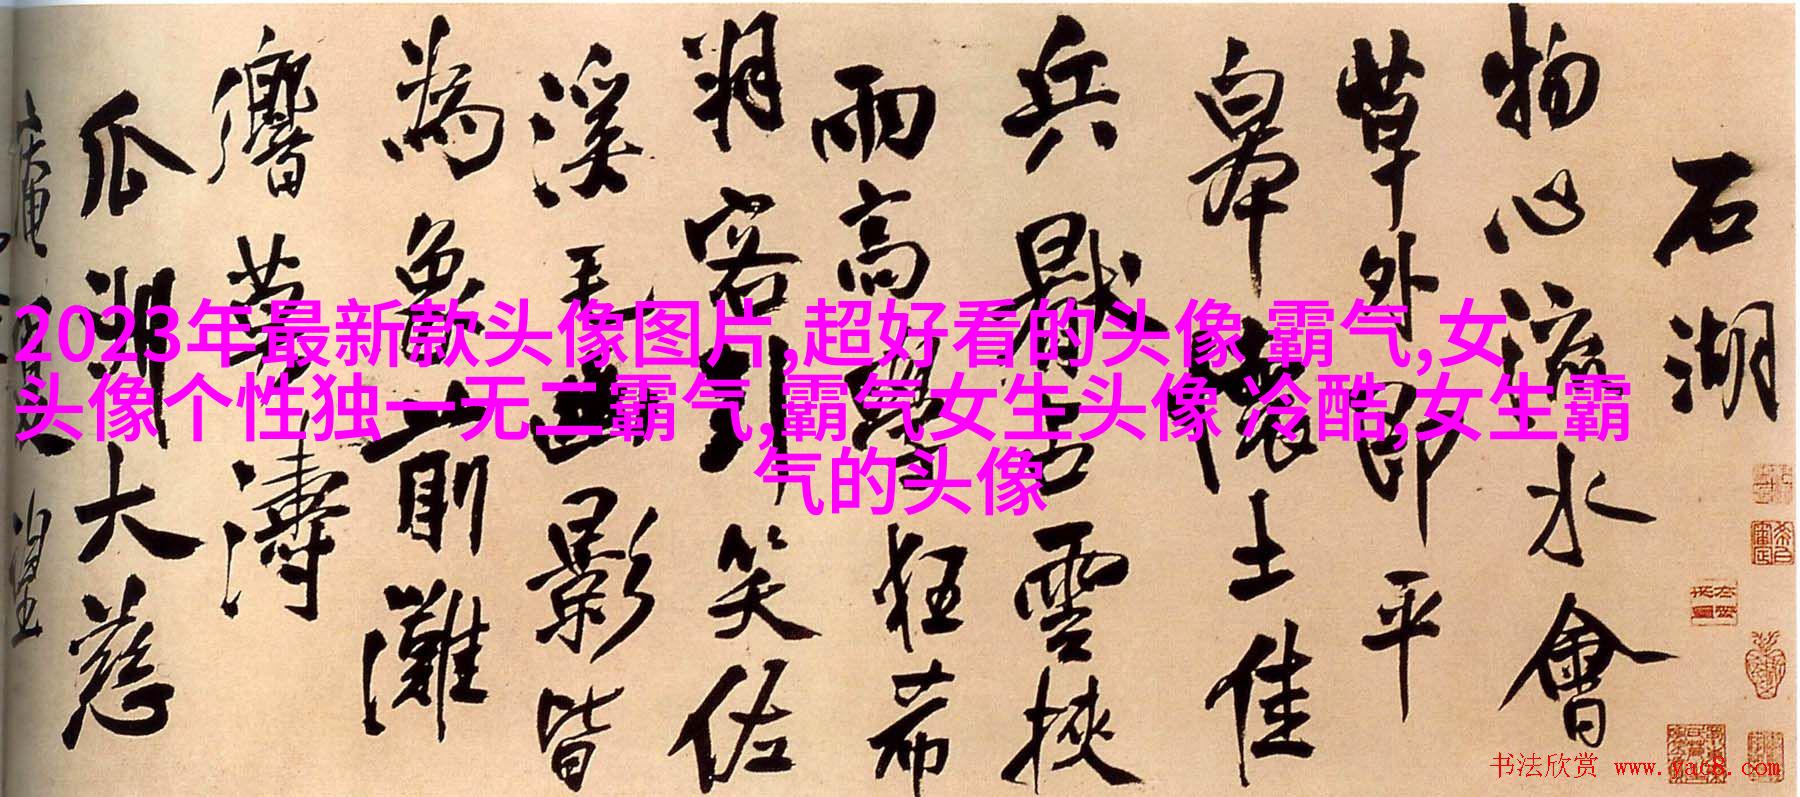 2023年最新款头像图片,超好看的头像 霸气,女
头像个性独一无二霸气,霸气女生头像 冷酷,女生霸
气的头像
石湖
物心流水會
草外即平
皋懷土佳
兵雲挾
雨高狂希
朔客引笑佐
溪毛影皆
為魚前灘
響萬濤
瓜湖大慈
书法欣赏 www.yac8.com